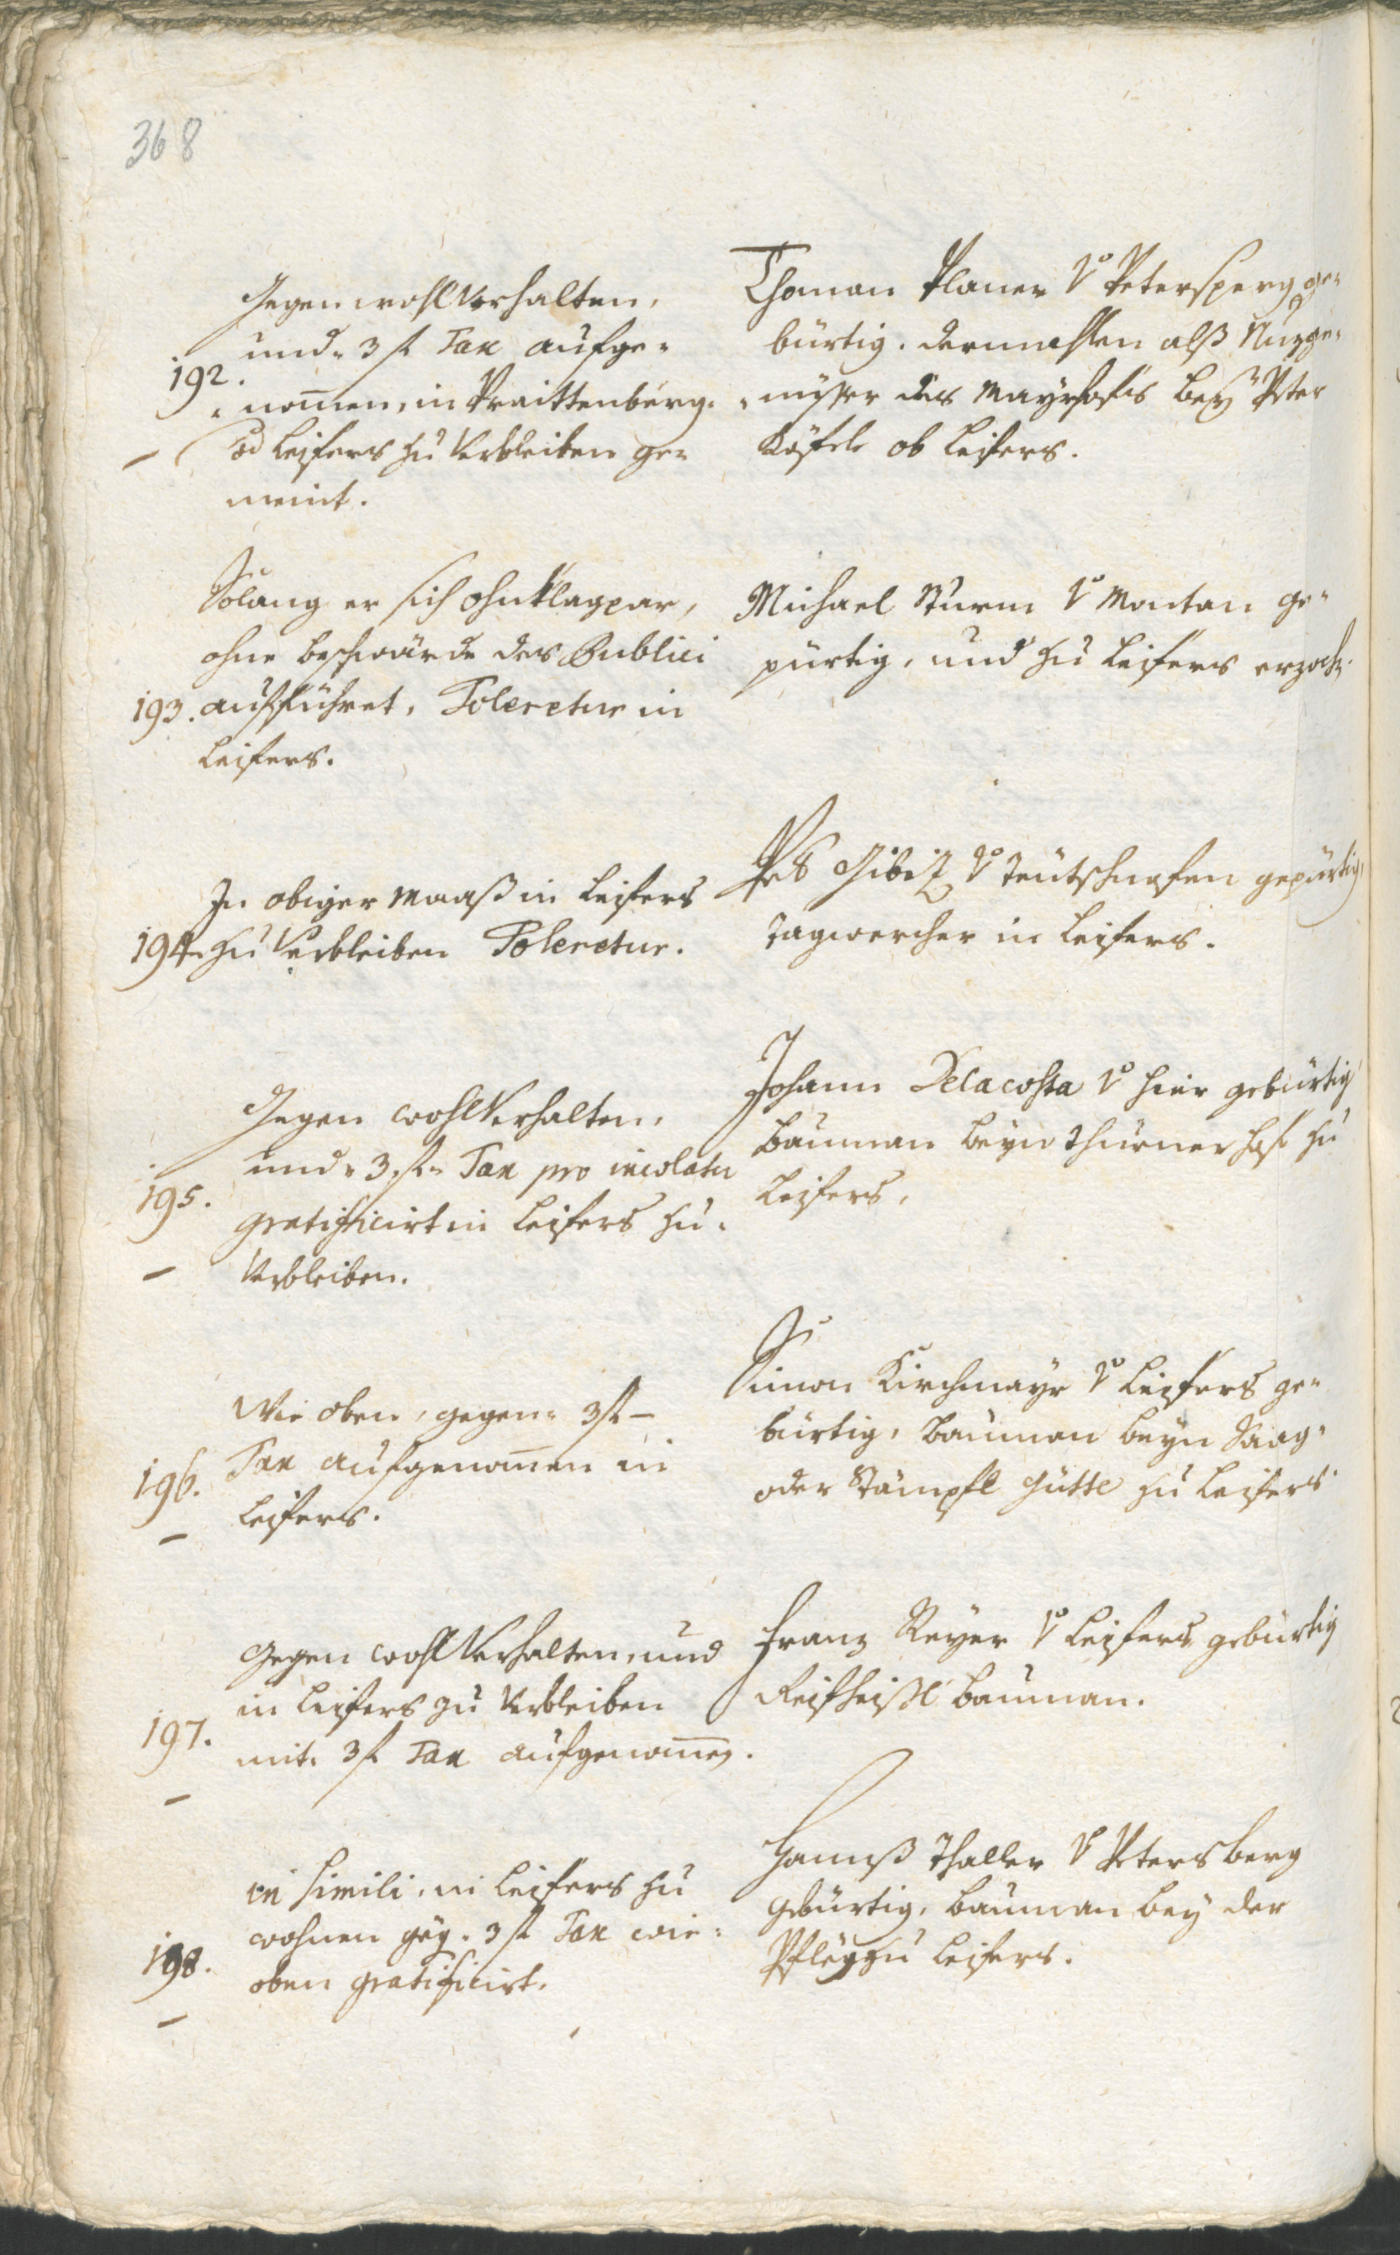 368
Gegen wohl Verhalten,
und 3 f Tax aufge-
192.
nomen, in Praittenberg
od Leifers zu Verbleiben ge-
meint.
Thoman Planer V Petersperg ge-
bürtig. dermahlen alß Nuzge-
niesser des Mayrhofs bey Peter
Köfele ob Leifers.
Solang er sich ohnklagpar,
ohne beschwärde des Publici
193. aufführet, Toleretur in
Leifers.
Michael Sturm V Montan ge-
pürtig, und zu Leifers
In obiger Maaß in Leifers
194. zu Verbleiben Toleretur.
Gibiz V Teutschnofen gepürtig,
Tagwercher in Leifers.
Gegen wohl Verhalten,
und 3 f Tax pro incolatu
195.
gratificirt in Leifers zu
Verbleiben.
Johann Delacosta V hier gebürtig
Bauman beyn Thurner Hof zu
Leifers,
Wie oben, gegen 3 f
196. Tax aufgenomen in
Leifers.
Simon Kirchmayr V Leifers ge-
bürtig, Bauman beyn Saag-
oder Stämpfl Hütte zu Leifers.
Gegen wohl Verhalten, und
in Leifers zu Verbleiben
197.
mit 3 f Tax aufgenomen.
Franz Reyer V Leifers gebürtig
Reifheißl Bauman.
in simili, in Leifers zu
wohnen geg. 3 f Tax wie
198.
oben gratificirt.
Hannß Thaller V Petersberg
gebürtig, Bauman bey der
Pfleg zu Leifers.